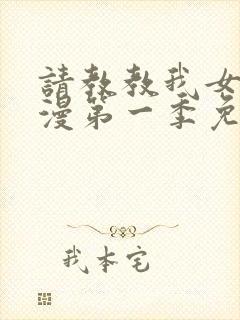 請教教我女
漫第一季免
我本宅